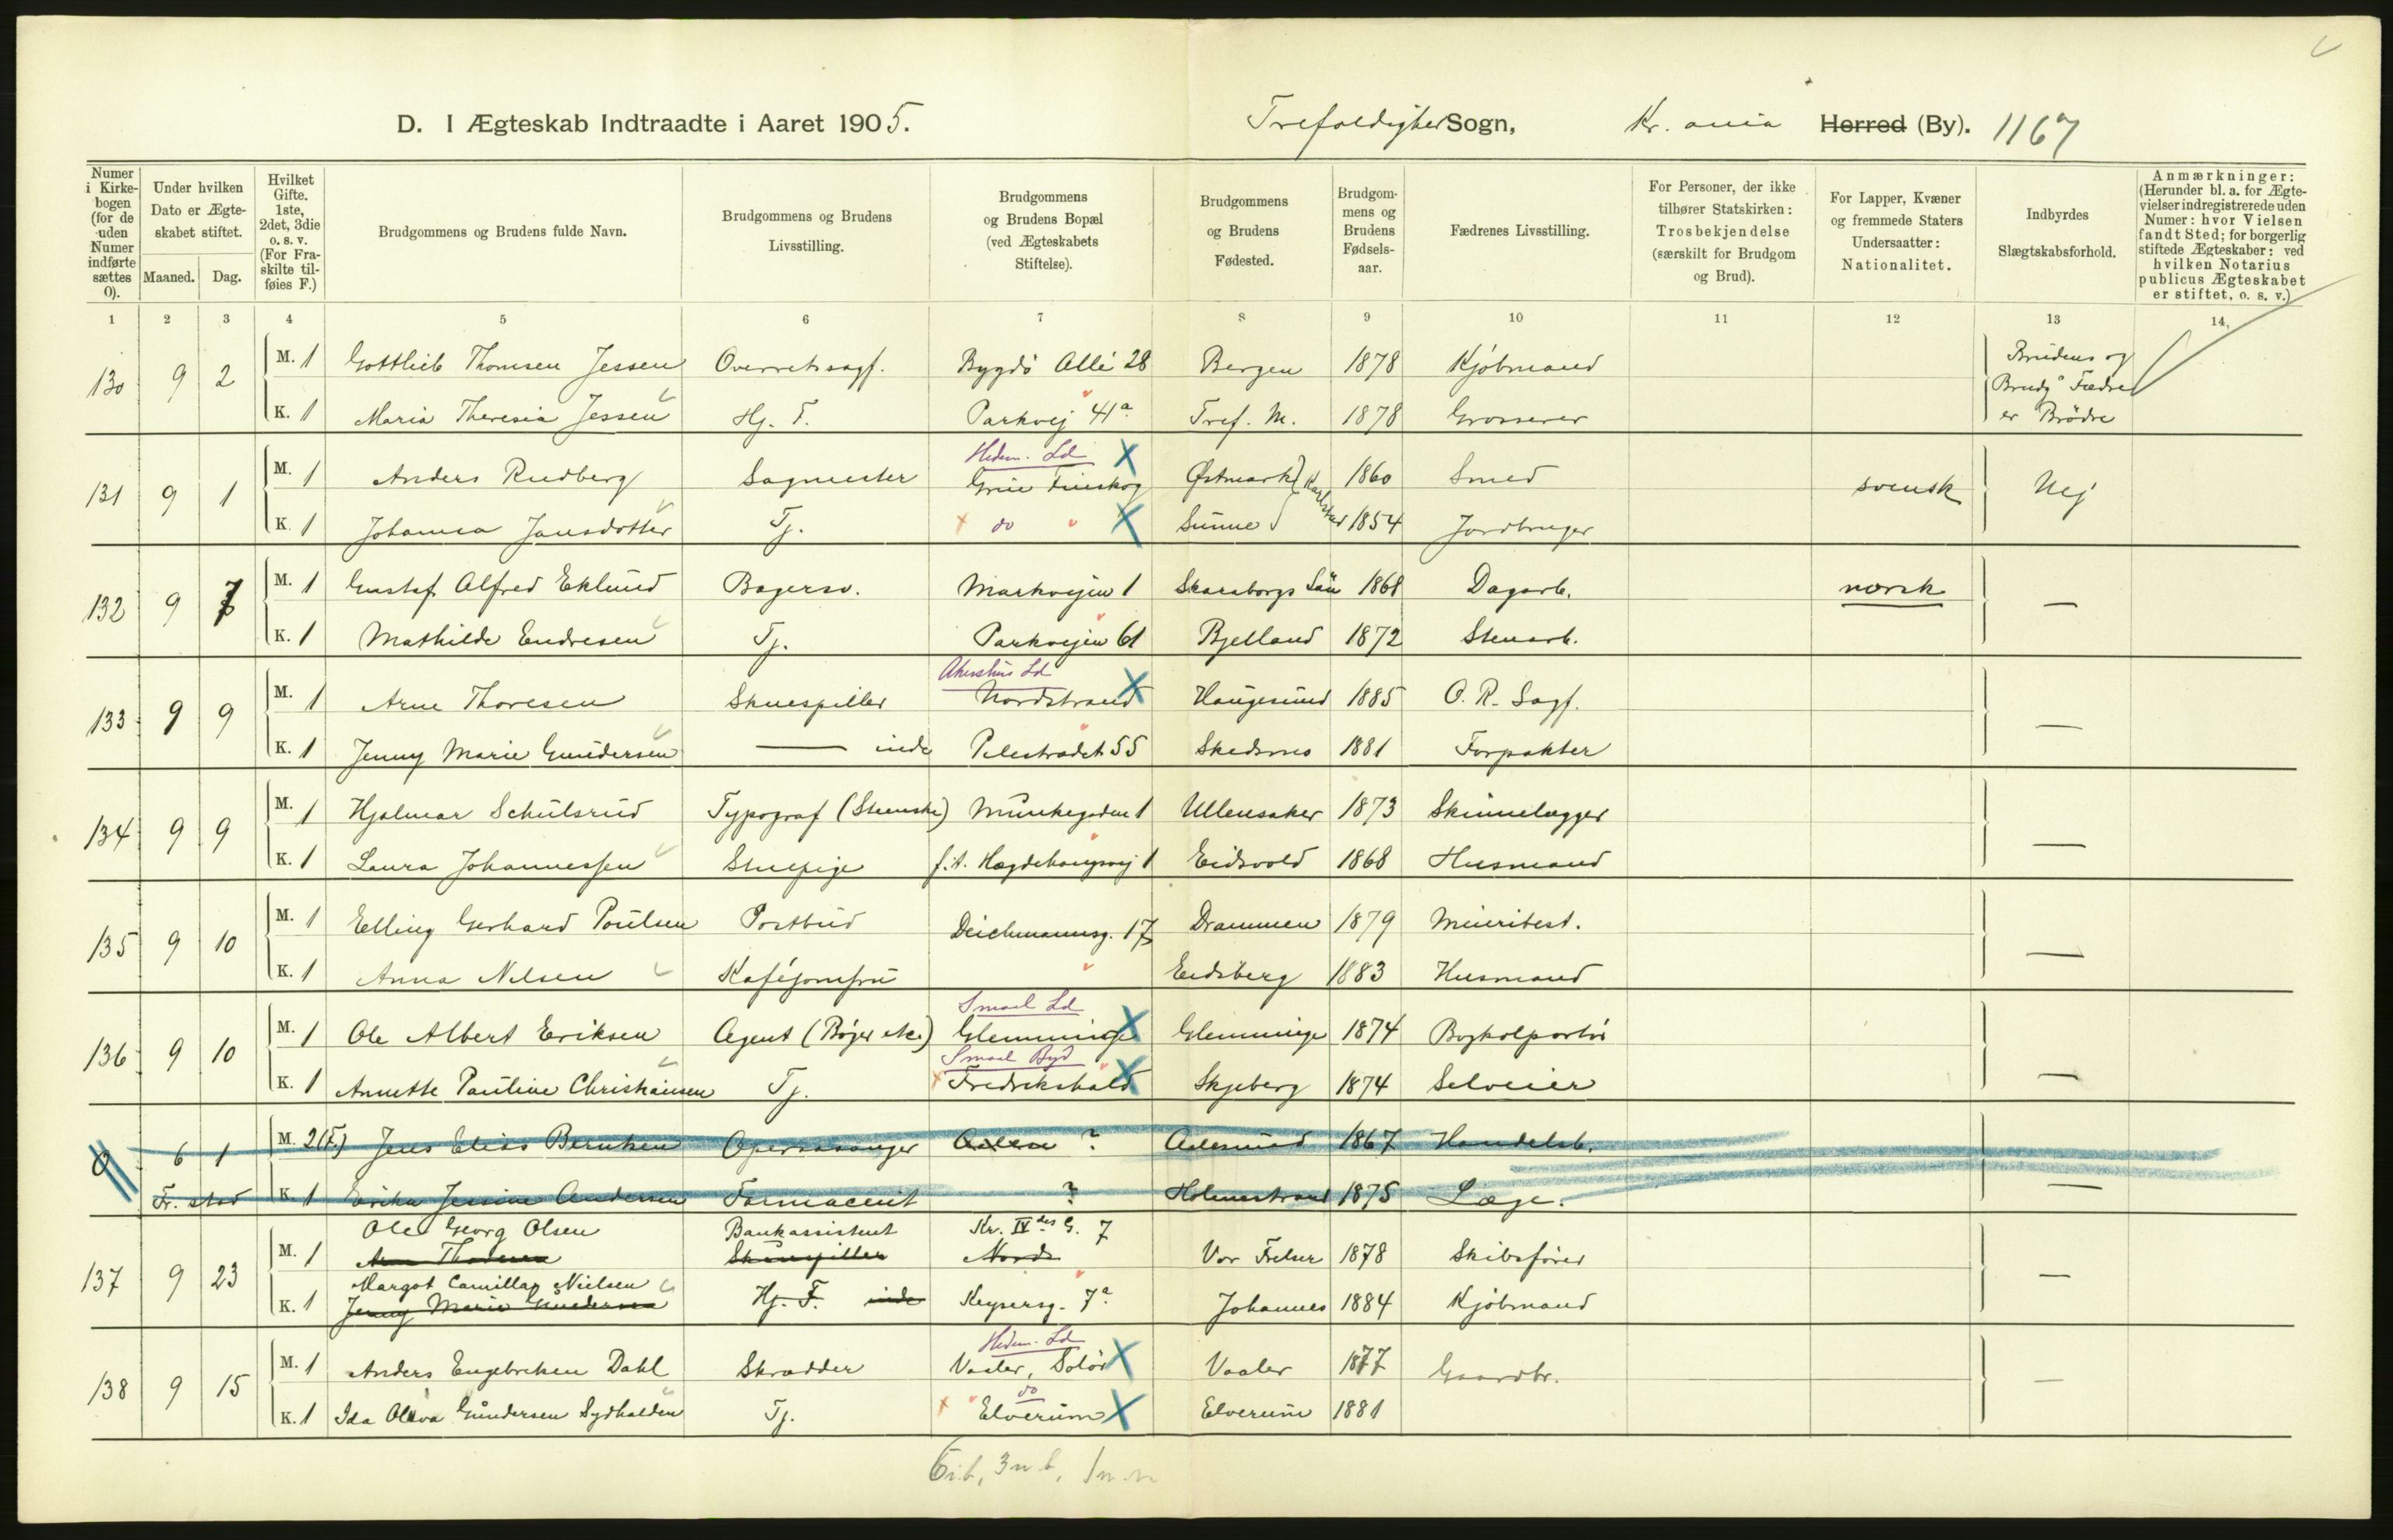 D. I Ægteskab Indtraadte i Aaret 1905. Trefoldighed Sogn, Kr. ania Herred (By). 1167
Numer i Kirkebogen (for de uden Numer indførte sættes 0).
Under hvilken Dato er Ægteskabet stiftet.
Maaned. Dag.
Hvilket Gifte. 1ste, 2det, 3die o. s. v. (For Fraskilte tilføies F.)
Brudgommens og Brudens fulde Navn.
Brudgommens og Brudens Livsstilling.
Brudgommens og Brudens Bopæl (ved Ægteskabets Stiftelse).
Brudgommens og Brudens Fødested.
Brudgommens og Brudens Fødselsaar.
Fædrenes Livsstilling.
For Personer, der ikke tilhører Statskirken: Trosbekjendelse (særskilt for Brudgom og Brud).
For Lapper, Kvæner og fremmede Staters Undersaatter: Nationalitet.
Indbyrdes Slægtskabsforhold.
Anmærkninger: (Herunder bl. a. for Ægtevielser indregistrerede uden Numer: hvor Vielsen fandt Sted; for borgerlig stiftede Ægteskaber: ved hvilken Notarius publicus Ægteskabet er stiftet, o. s. v.)
1 2 3 4 5 6 7 8 9 10 11 12 13 14.
130 9 2 M. 1 Gottlieb Thomsen Jessen Overretssagf. Bygdö Allé 28 Bergen 1878 Kjöbmand Brudens og Brudg.s Fædre er Brödre
K. 1 Maria Theresia Jessen Hj. F. Parkvej 41a Tref. M. 1878 Grosserer
Hedm. Ld
131 9 1 M. 1 Anders Rudberg Sagmester Grue Finskog Østmark Karlstad 1860 Smed svensk Nej
K. 1 Johanna Jansdotter Tj. do Sunne 1854 Jordbruger
132 9 7 M. 1 Gustaf Alfred Eklund Bagersv. Markvejen 1 Skaraborgs Län 1868 Dagarb. norsk —
K. 1 Mathilde Endresen Tj. Parkvejen 61 Bjelland 1872 Stenarb.
Akershus Ld
133 9 9 M. 1 Arne Thoresen Skuespiller Nordstrand Haugesund 1885 O. R. Sagf. —
K. 1 Jenny Marie Gundersen — inde Pilestrædet 55 Skedsmo 1881 Forpakter
134 9 9 M. 1 Hjalmar Schulsrud Typograf (Steenske) Munkegaden 1 Ullensaker 1873 Skinnelægger —
K. 1 Laura Johannessen Stuepige f.t. Hægdehaugsvej 1 Eidsvold 1868 Husmand
135 9 10 M. 1 Elling Gerhard Poulsen Postbud Deichmannsg. 17 Drammen 1879 Meieribest. —
K. 1 Anna Nilsen Kaféjomfru Eidsberg 1883 Husmand
Smaal Ld
136 9 10 M. 1 Ole Albert Eriksen Agent (Bøger etc.) Glemminge Glemminge 1874 Bogkolportör —
Smaal Byd
K. 1 Annette Pauline Christiansen Tj. Fredrikshald Skjeberg 1874 Selveier
0 6 1 M. 2(F) Jens Elias Berntsen Operasanger Aalen ? Aalesund 1867 Handelsb. —
Fr. stad K. 1 Erika Jensine Andersen Farmaceut ? Holmestrand 1875 Læge.
Ole Georg Olsen Bankassistent Kr. IV des G. 7
137 9 23 M. 1 Arne Thoresen Skuespiller Nords Vor Frelser 1878 Skibsfører —
Margot Camilla Nielsen
K. 1 Jenny Marie Gundersen Hj. F. inde Keysersg. 7a Johannes 1884 Kjöbmand
Hedm. Ld
138 9 15 M. 1 Anders Engebretsen Dahl Skrædder Vaaler, Solör Vaaler 1877 Gaardbr. —
do
K. 1 Ida Oliva Gundersen Sydhalden Tj. Elverum Elverum 1881
6 i.b., 3 u.b.,